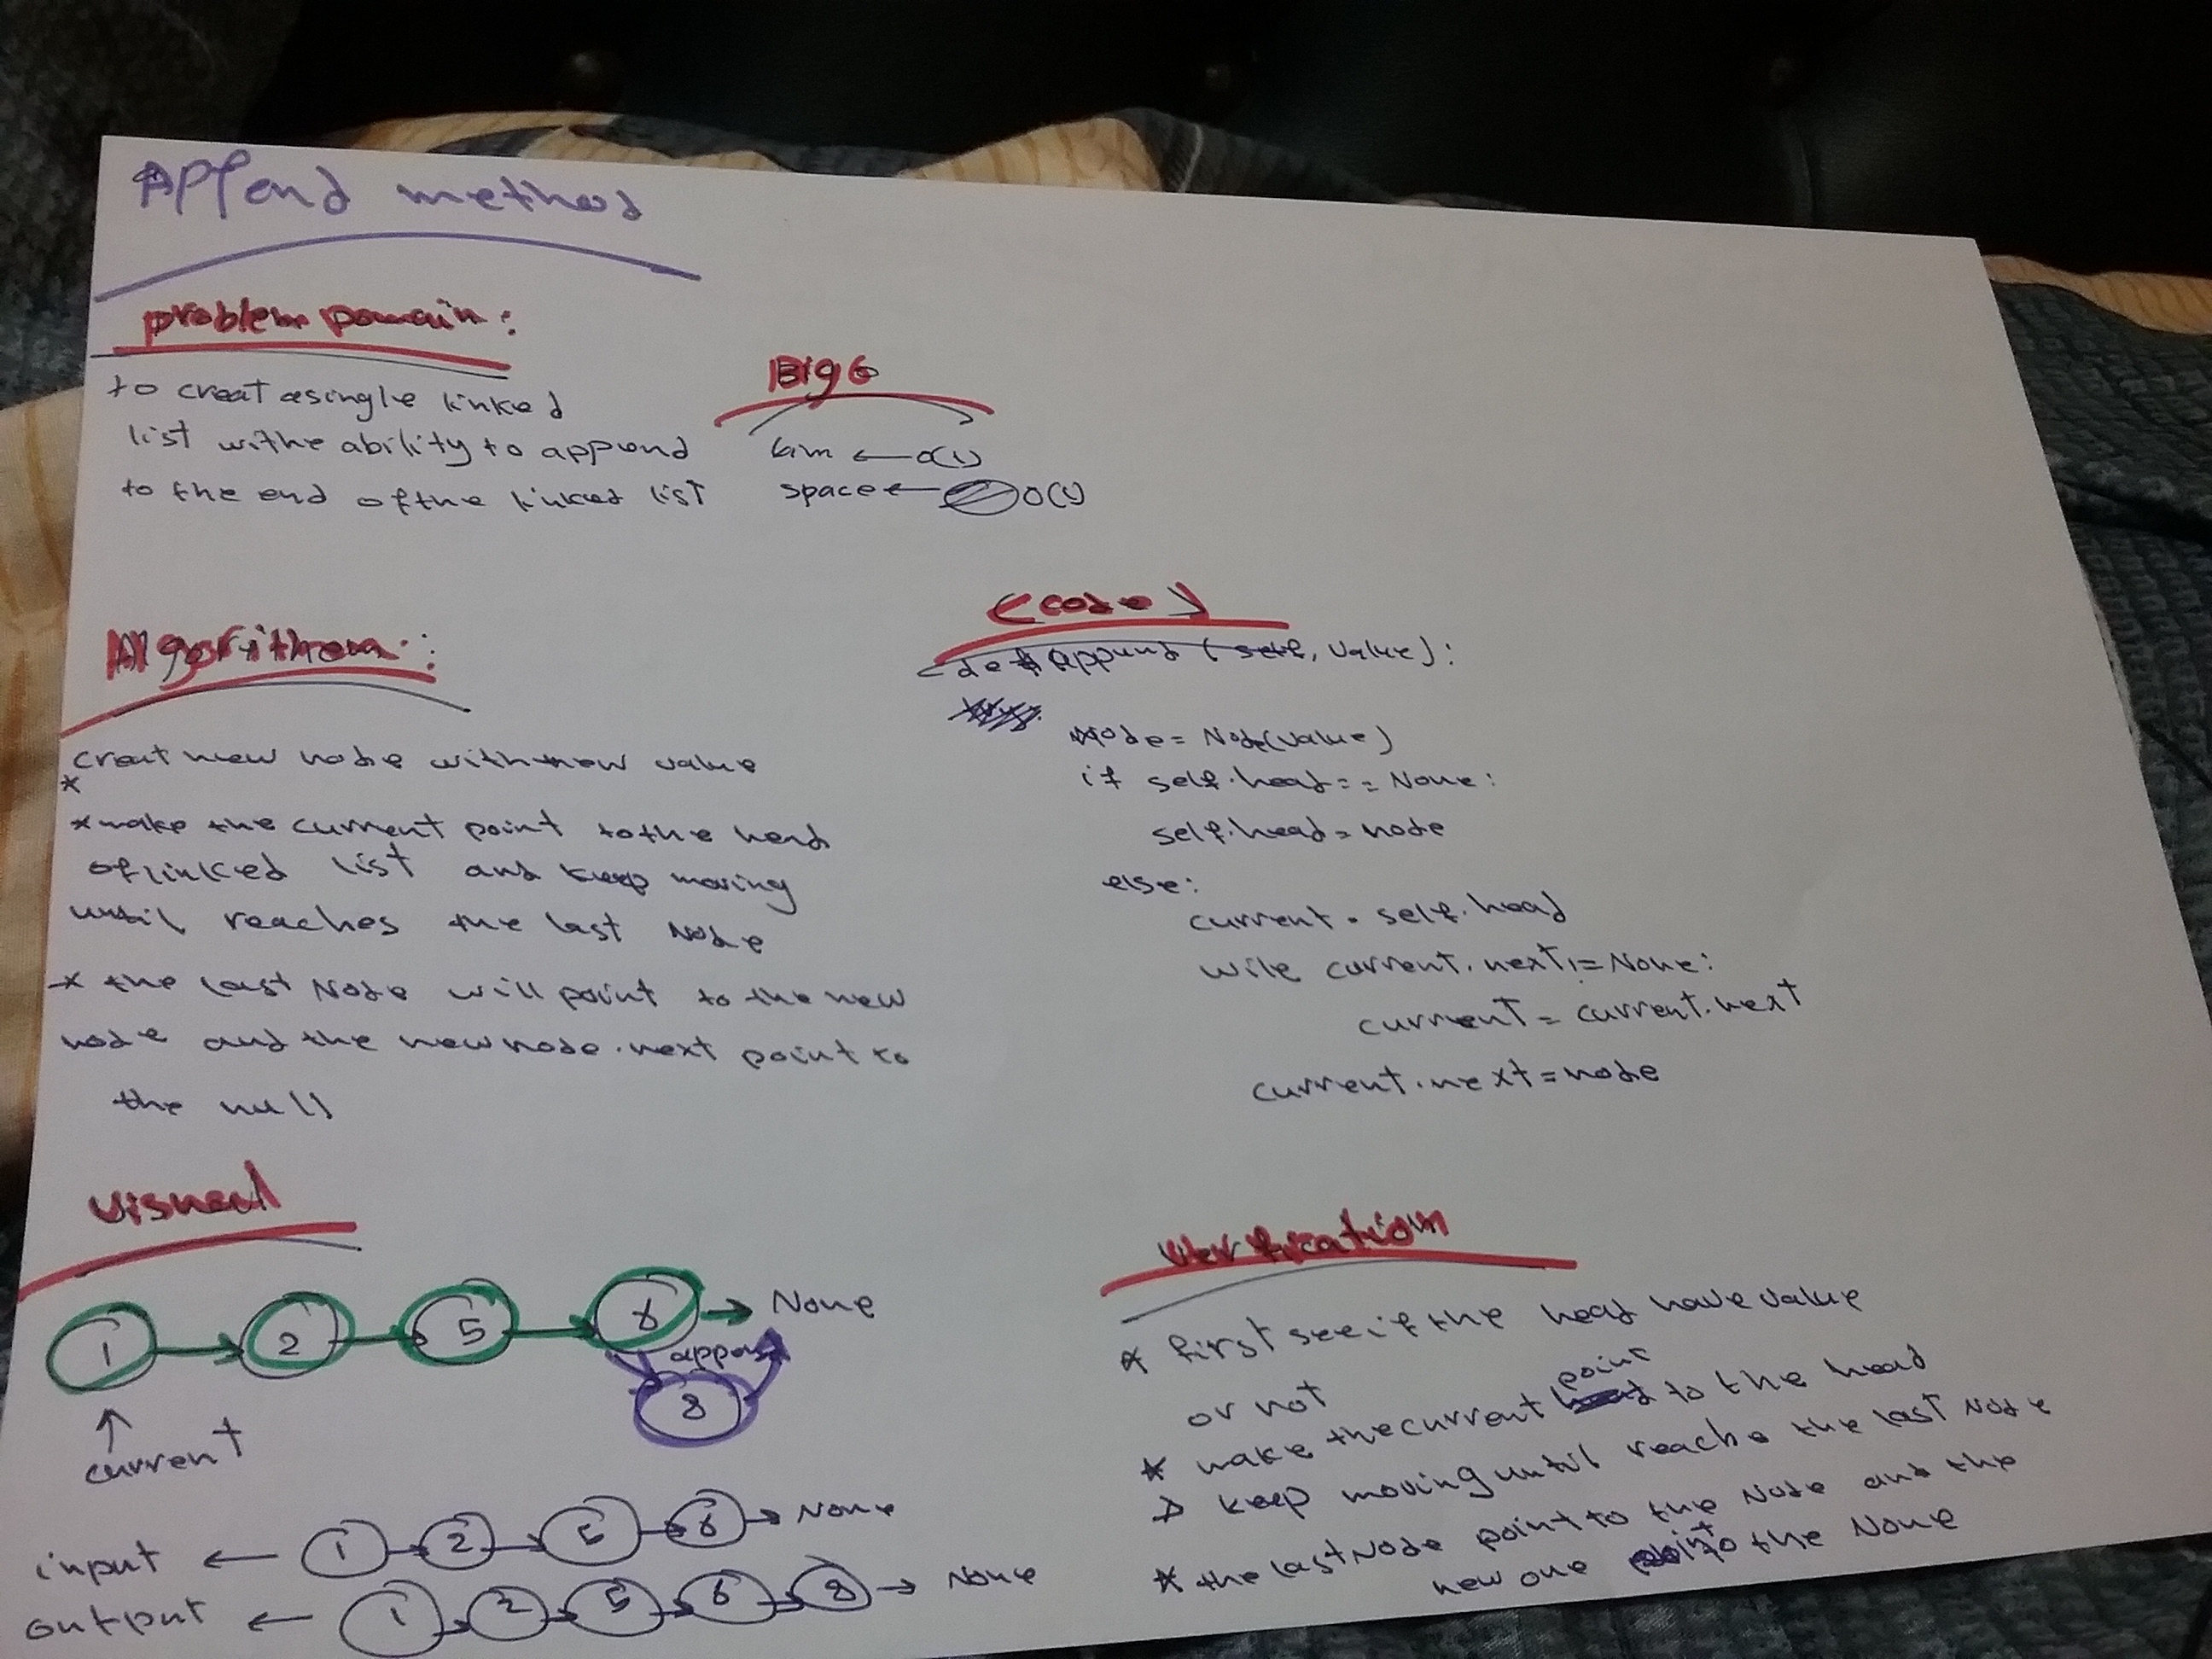 Append method
problem Domain:
to creat a single linked
list withe ability to append
to the end of the linked list
Big O
tim ← O(1)
space ← O(1)
Algorithem:
* creat new node with new value
* make the current point to the head
of linked list and keep moving
until reaches the last Node
* the last Node will point to the new
node and the new node.next point to
the null
(code)
def append (self, value):
node = Node(value)
if self.head == None:
self.head = node
else:
current = self.head
wile current.next != None:
current = current.next
current.next = node
visueal
1 → 2 → 5 → 6 → None
append
8
↑
current
input ← 1 → 2 → 5 → 6 → None
output ← 1 → 2 → 5 → 6 → 8 → None
verification
* first see if the head have value
or not
* make the current point to the head
* keep moving until reache the last Node
* the last Node point to the Node and the
new one point to the None